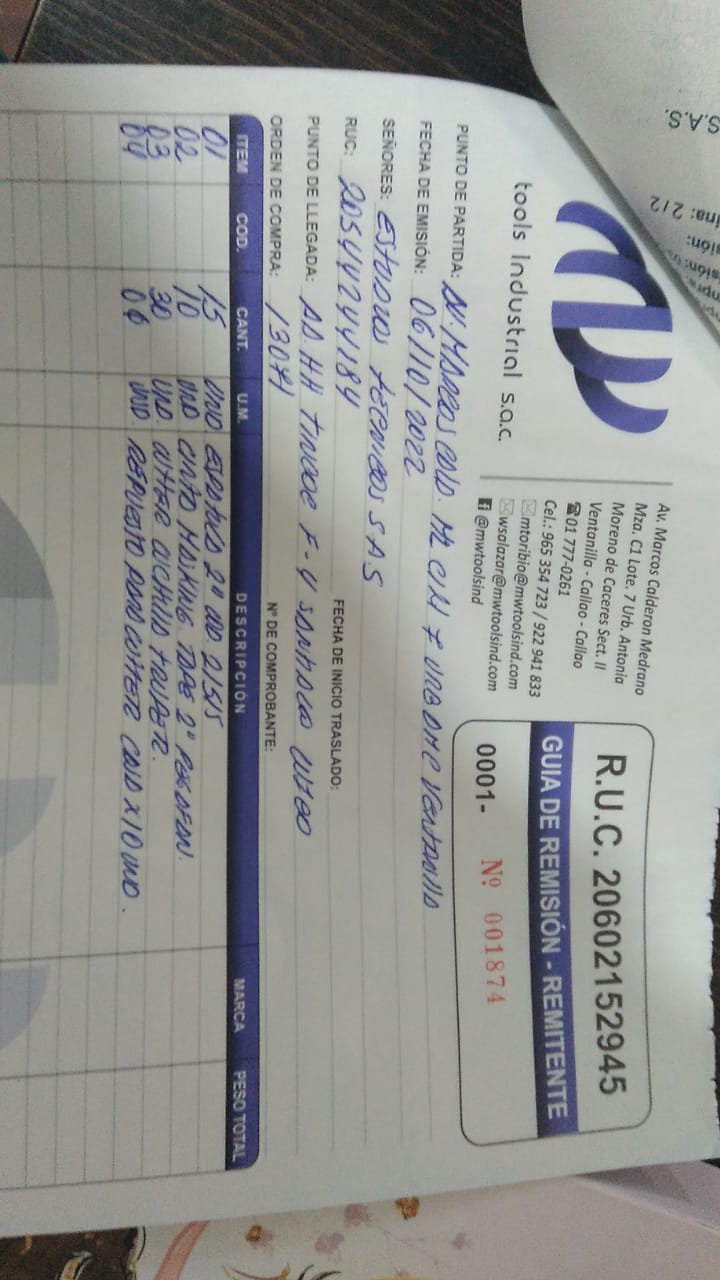 S.A.S.
ina: 2 / 2
sión:
MW
tools Industrial s.a.c.
Av. Marcos Calderon Medrano
Mza. C1 Lote. 7 Urb. Antonia
Moreno de Caceres Sect. II
Ventanilla - Callao - Callao
01 777-0261
Cel.: 965 354 723 / 922 941 833
mtoribio@mwtoolsind.com
wsalazar@mwtoolsind.com
@mwtoolsind
R.U.C. 20602152945
GUIA DE REMISIÓN - REMITENTE
0001- Nº 001874
PUNTO DE PARTIDA: AV. MARCOS CALD. Mz C1 Lt 7 URB AMC Ventanilla
FECHA DE EMISIÓN: 06/10/2022
SEÑORES: ESTUDIOS TECNICOS S A S
RUC: 20544244184 FECHA DE INICIO TRASLADO:
PUNTO DE LLEGADA: AA.HH F-4 SANTIAGO
ORDEN DE COMPRA: 13071 Nº DE COMPROBANTE:
ITEM COD. CANT. U.M. DESCRIPCIÓN MARCA PESO TOTAL
01 15 UND 2"
02 10 UND CINTA MASKING TAPE 2"
03 30 UND. CUTTER TRUPER.
04 06 UND. REPUESTO PARA CUTTER CAJA X 10 UND.